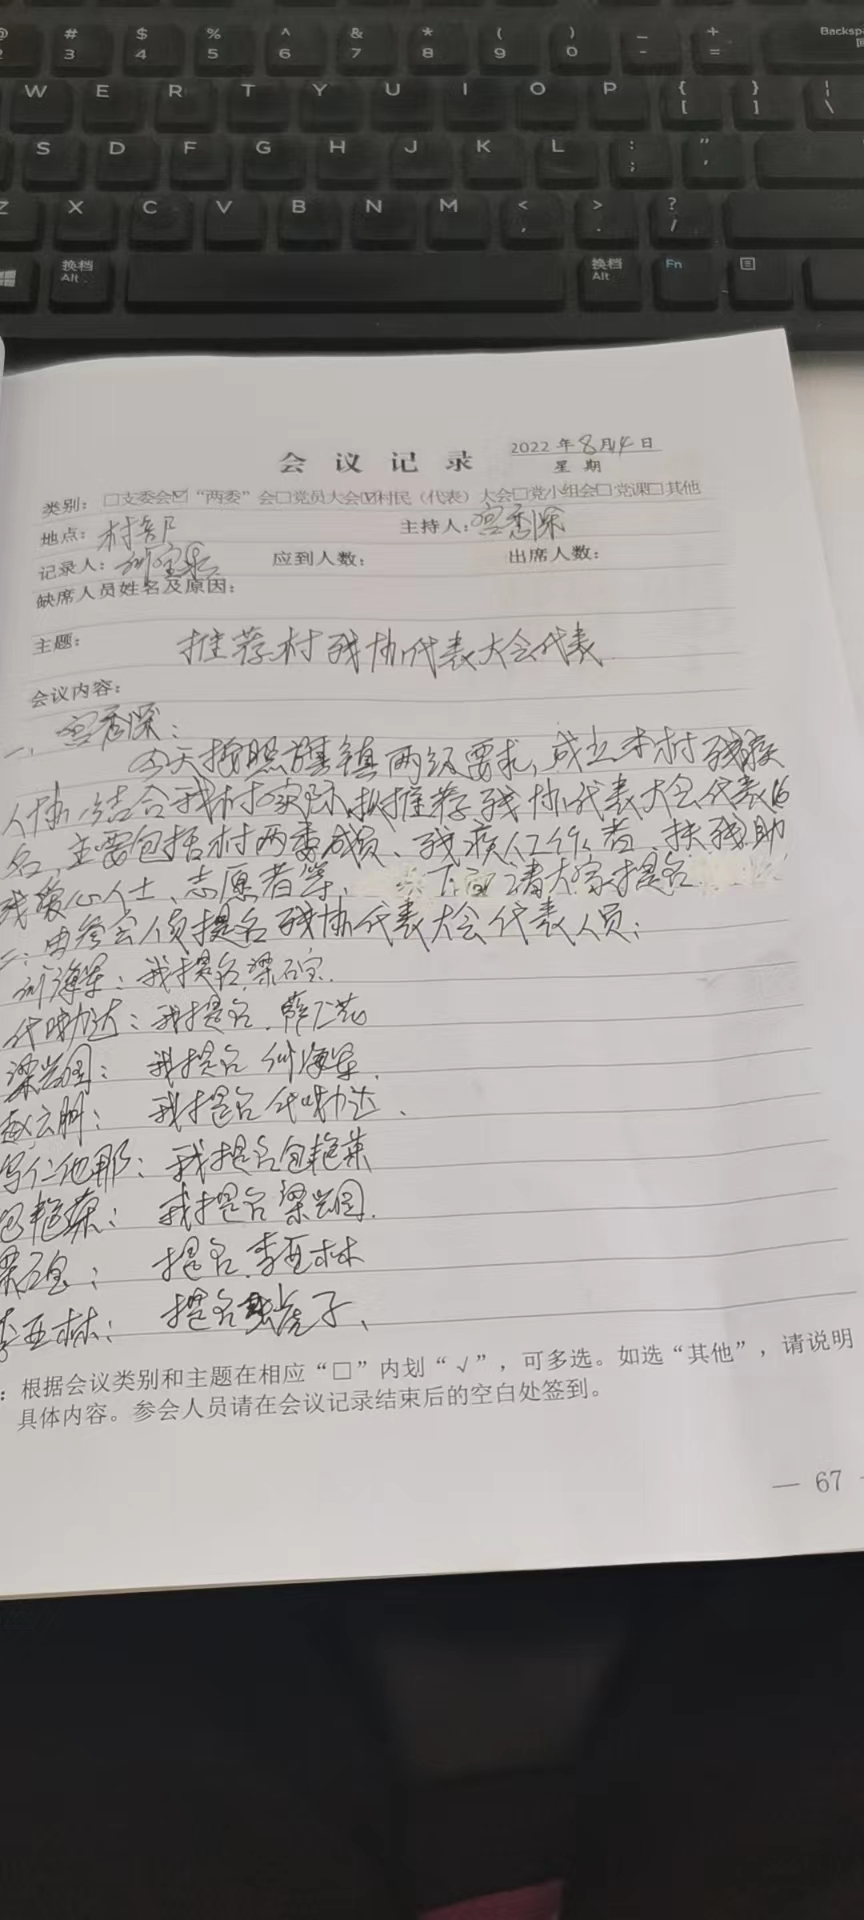 @ # $ % ^ & * ( ) _ + Backsp
2 3 4 5 6 7 8 9 0 - =
W E R T Y U I O P { } |
[ ] \
S D F G H J K L : "
; '
Z X C V B N M < > ?
, . /
换档 Alt 换档 Alt Fn
会议记录 2022年8月14日
星期
类别：□支委会☑“两委”会□党员大会☑村民（代表）大会□党小组会□党课□其他
地点：村部 主持人：宫秀深
记录人： 应到人数： 出席人数：
缺席人员姓名及原因：
主题： 推荐村残协代表大会代表
会议内容：
一、宫秀深：
今天按照旗镇两级要求，成立本村残疾
人协，结合我村实际，拟推荐残协代表大会代表16
名，主要包括村两委成员、残疾人工作者、扶残助
残爱心人士、志愿者等、下面请大家提名
二：由参会人员提名残协代表大会代表人员：
海军：我提名梁石宝.
代吐力达：我提名.薛仁花
梁兴国：我提名 海军.
赵云朋：我提名代吐力达、
仁他那：我提名包艳荣
包艳荣：我提名梁兴国.
梁石宝：提名.李亚林
李亚林：提名 虎子、
：根据会议类别和主题在相应“□”内划“√”，可多选。如选“其他”，请说明
具体内容。参会人员请在会议记录结束后的空白处签到。
— 67 —